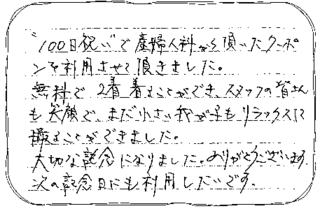 "100日祝い"で産婦人科から頂いたクーポ
ンを利用させて頂きました。
無料で2着着ることができ、スタッフの皆さん
も笑顔で、まだ小さい我が子もリラックスして
撮ることができました。
大切な記念になりました。ありがとうございます。
次の記念日にも利用したいです。